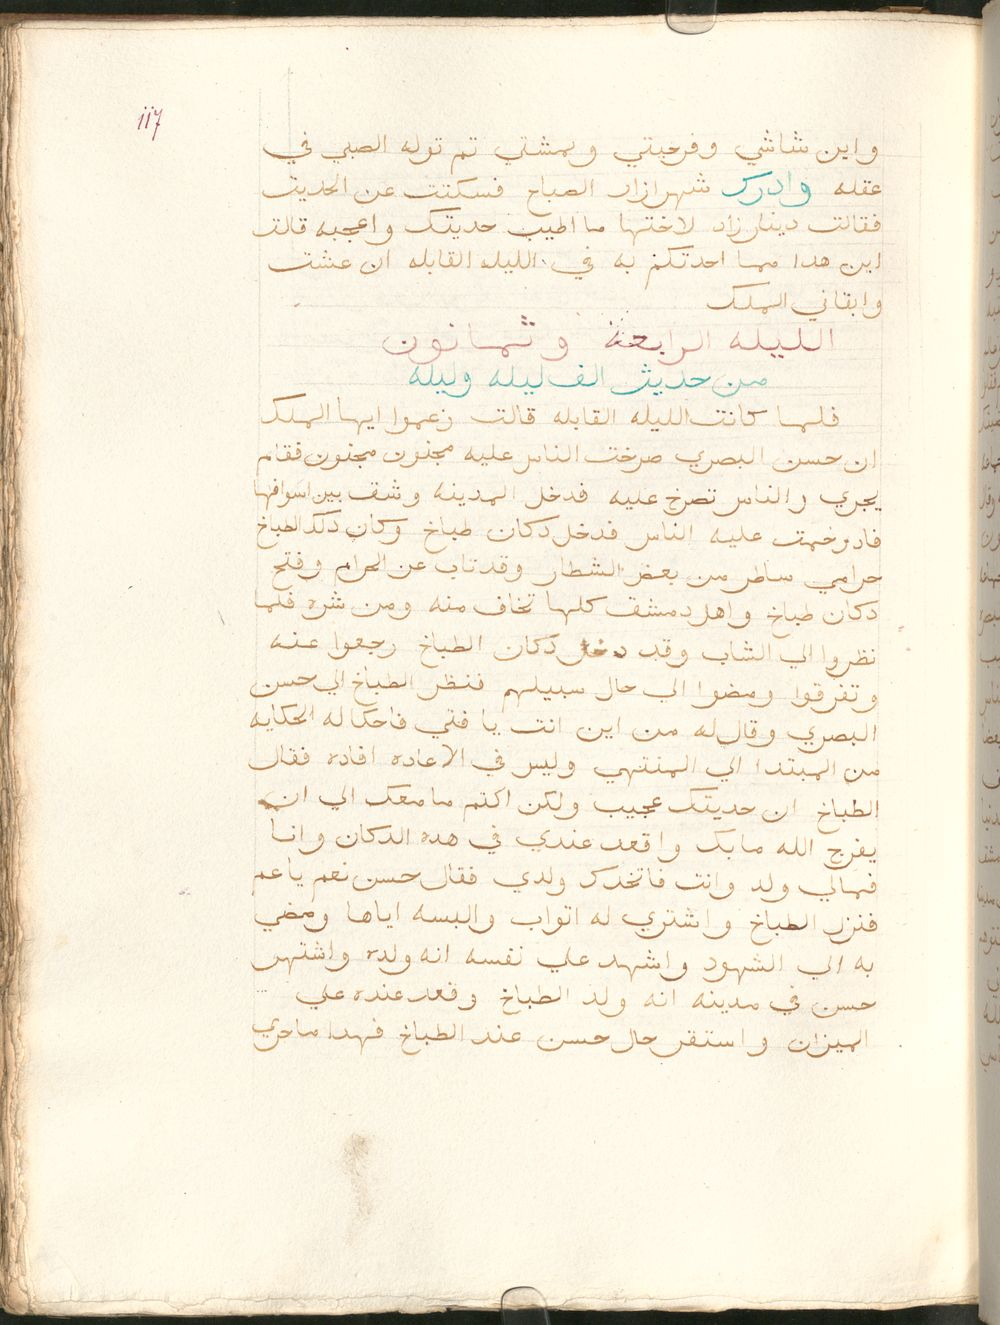 117
واين شاشي وفرجيتي وبمشتي تم توله الصبي في
عقله وادرك شهرازاد الصباح فسكتت عن الحديت
فقالت دينارزاد لاختها ما اطيب حديتك واعجبه قالت
اين هدا مما احدتكم به في الليله القابله ان عشت
وابقاني الملك
الليله الرابعة وثمانون
من حديث الف ليله وليله
فلما كانت الليله القابله قالت زعموا ايها الملك
ان حسن البصري صرخت الناس عليه مجنون مجنون فقام
يجري والناس تصرخ عليه فدخل المدينه وشق بين اسواقها
فادرخمت عليه الناس فدخل دكان طباخ وكان دلك الطباخ
حرامي ساطر من بعض الشطار وقد تاب عن الحرام وفتح
دكان طباخ واهل دمشق كلها تخاف منه ومن شره فلما
نظروا الي الشاب وقد دخل دكان الطباخ رجعوا عنه
وتفرقوا ومضوا الي حال سبيلهم فنظر الطباخ الي حسن
البصري وقال له من اين انت يا فتي فاحكا له الحكايه
من المبتدا الي المنتهي وليس في الاعاده افاده فقال
الطباخ ان حديتك عجيب ولكن اكتم ما معك الي ان
يفرج الله ما بك واقعد عندي في هده الدكان وانا
فمالي ولد وانت فاتخدك ولدي فقال حسن نعم يا عم
فنزل الطباخ واشتري له اتواب والبسه اياها ومضي
به الي الشهود واشهد علي نفسه انه ولده واشتهر
حسن في مدينه انه ولد الطباخ وقعد عنده علي
الميزان واستقر حال حسن عند الطباخ فهدا ماجري